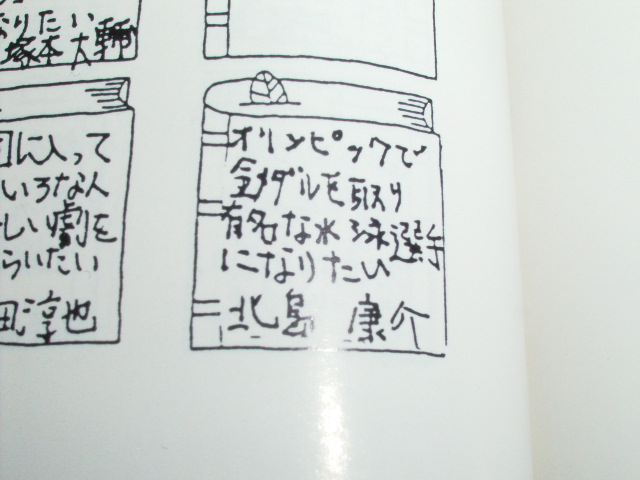 なりたい
塚本大輔
団に入って
いろな人
しい劇を
らいたい
田淳也
オリンピックで
金メダルを取り
有名な水泳選手
になりたい
北島 康介